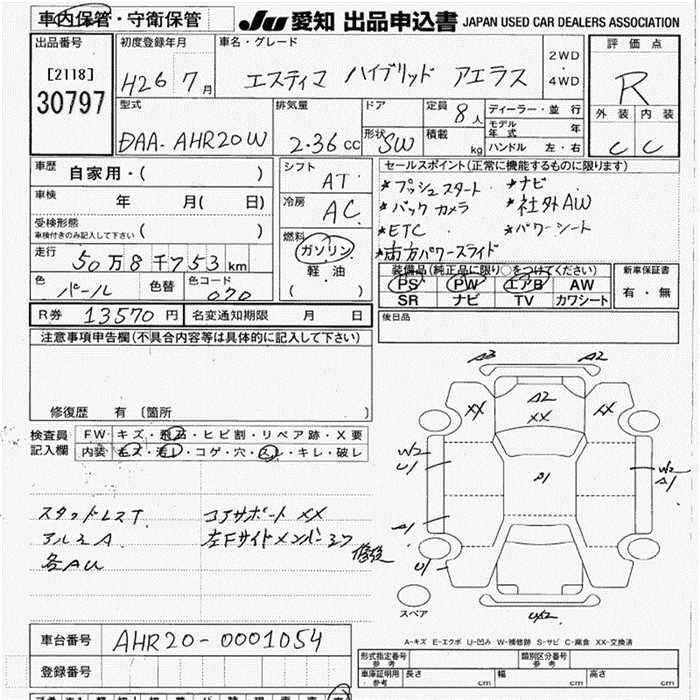 車内保管・守衛保管
JU 愛知 出品申込書 JAPAN USED CAR DEALERS ASSOCIATION
出品番号
[2118]
30797
初度登録年月
H26 7月
車名・グレード
エスティマ ハイブリッド アエラス
2WD
4WD
評価点
R
外装 内装
C C
型式
DAA-AHR20W
排気量
2.36cc
ドア
形状 SW
定員 8人
積載 kg
ディーラー・並行
モデル年式 年
ハンドル 左・右
車歴 自家用・( )
車検 年 月( 日)
受検形態
車検付きのみ記入して下さい ( )
走行 50万8千753km
色 パール 色替 色コード 070
シフト AT
冷房 AC
燃料
ガソリン
軽油
( )
セールスポイント(正常に機能するものに限ります)
*プッシュスタート *ナビ
*バックカメラ *社外AW
*ETC *パワーシート
*両方パワースライド
装備品(純正品に限り○をつけてください)
PS PW エアB AW
SR ナビ TV カワシート
新車保証書
有・無
R券 13570円 名変通知期限 月 日
後日品
注意事項申告欄(不具合内容等は具体的に記入して下さい)
修復歴 有 〔箇所 〕
検査員記入欄
FW キズ・飛石・ヒビ割・リペア跡・X要
内装 キズ・汚レ・コゲ・穴・スレ・キレ・破レ
スタッドレスT. コアサポート XX
アルミA 左Fサイドメンバー 修復
各AU
A3 A2
XX A2 XX XX
W2 U1 A1 W2 A1
A1
U1
UX2
スペア
A-キズ E-エクボ U-凹み W-補修跡 S-サビ C-腐食 XX-交換済
車台番号 AHR20-0001054
登録番号
形式指定番号 参考 類別区分番号 参考
車庫証明用・参考 長さ cm 幅 cm 高さ cm